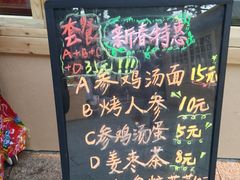 套餐
A+B+C
+D 35元!!!
新春特惠
A 参鸡汤面 15元
B 烤人参 10元
C 参鸡汤蛋 5元
D 麦枣茶 8元